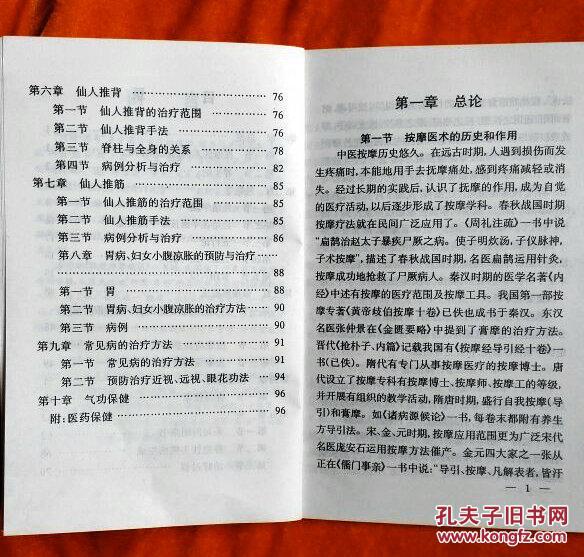 第六章 仙人推背 …………………… 76
第一节 仙人推背的治疗范围 ………… 76
第二节 仙人推背手法 ………………… 76
第三节 脊柱与全身的关系 …………… 78
第四节 病例分析与治疗 ……………… 82
第七章 仙人推筋 …………………… 85
第一节 仙人推筋的治疗范围 ………… 85
第二节 仙人推筋手法 ………………… 85
第三节 病例分析与治疗 ……………… 86
第八章 胃病、妇女小腹凉胀的预防与治疗……
…………………………………… 88
第一节 胃 …………………………… 88
第二节 胃病、妇女小腹凉胀的治疗方法 … 90
第三节 病例 …………………………… 90
第九章 常见病的治疗方法 ………… 91
第一节 常见病的治疗方法 …………… 91
第二节 预防治疗近视、远视、眼花功法 … 94
第十章 气功保健 …………………… 96
附:医药保健 ………………………… 96
第一章 总论
第一节 按摩医术的历史和作用
中医按摩历史悠久。在远古时期,人遇到损伤而发
生疼痛时,本能地用手去抚摩痛处,感到疼痛减轻或消
失。经过长期的实践后,认识了抚摩的作用,成为自觉
的医疗活动,以后逐步形成了按摩学科。春秋战国时期
按摩疗法就在民间广泛应用了。《周礼注疏》一书中说
“扁鹊治赵太子暴疾尸厥之病。使子明炊汤,子仪脉神,
子术按摩”,描述了春秋战国时期,名医扁鹊运用针灸、
按摩成功地抢救了尸厥病人。秦汉时期的医学名著《内
经》中述有按摩的医疗范围及按摩工具。我国第一部按
摩专著《黄帝歧伯按摩十卷》已佚也成书于秦汉。东汉
名医张仲景在《金匮要略》中提到了膏摩的治疗方法。
晋代《抢朴子、内篇》记载我国有《按摩经导引经十卷》一
书(已佚)。隋代有专门从事按摩医疗的按摩博士。唐
代设立了按摩专科有按摩博士、按摩师、按摩工的等级,
并开展有组织的教学活动,隋唐时期,盛行自我按摩(导
引)和膏摩。如《诸病源候论》一书,每卷末都附有养生
方导引法。宋、金、元时期,按摩应用范围更为广泛宋代
名医庞安石运用按摩方法催产。金元四大家之一张从
正在《儒门事亲》一书中说:“导引、按摩、凡解表者,皆汗
— 1 —
孔夫子旧书网